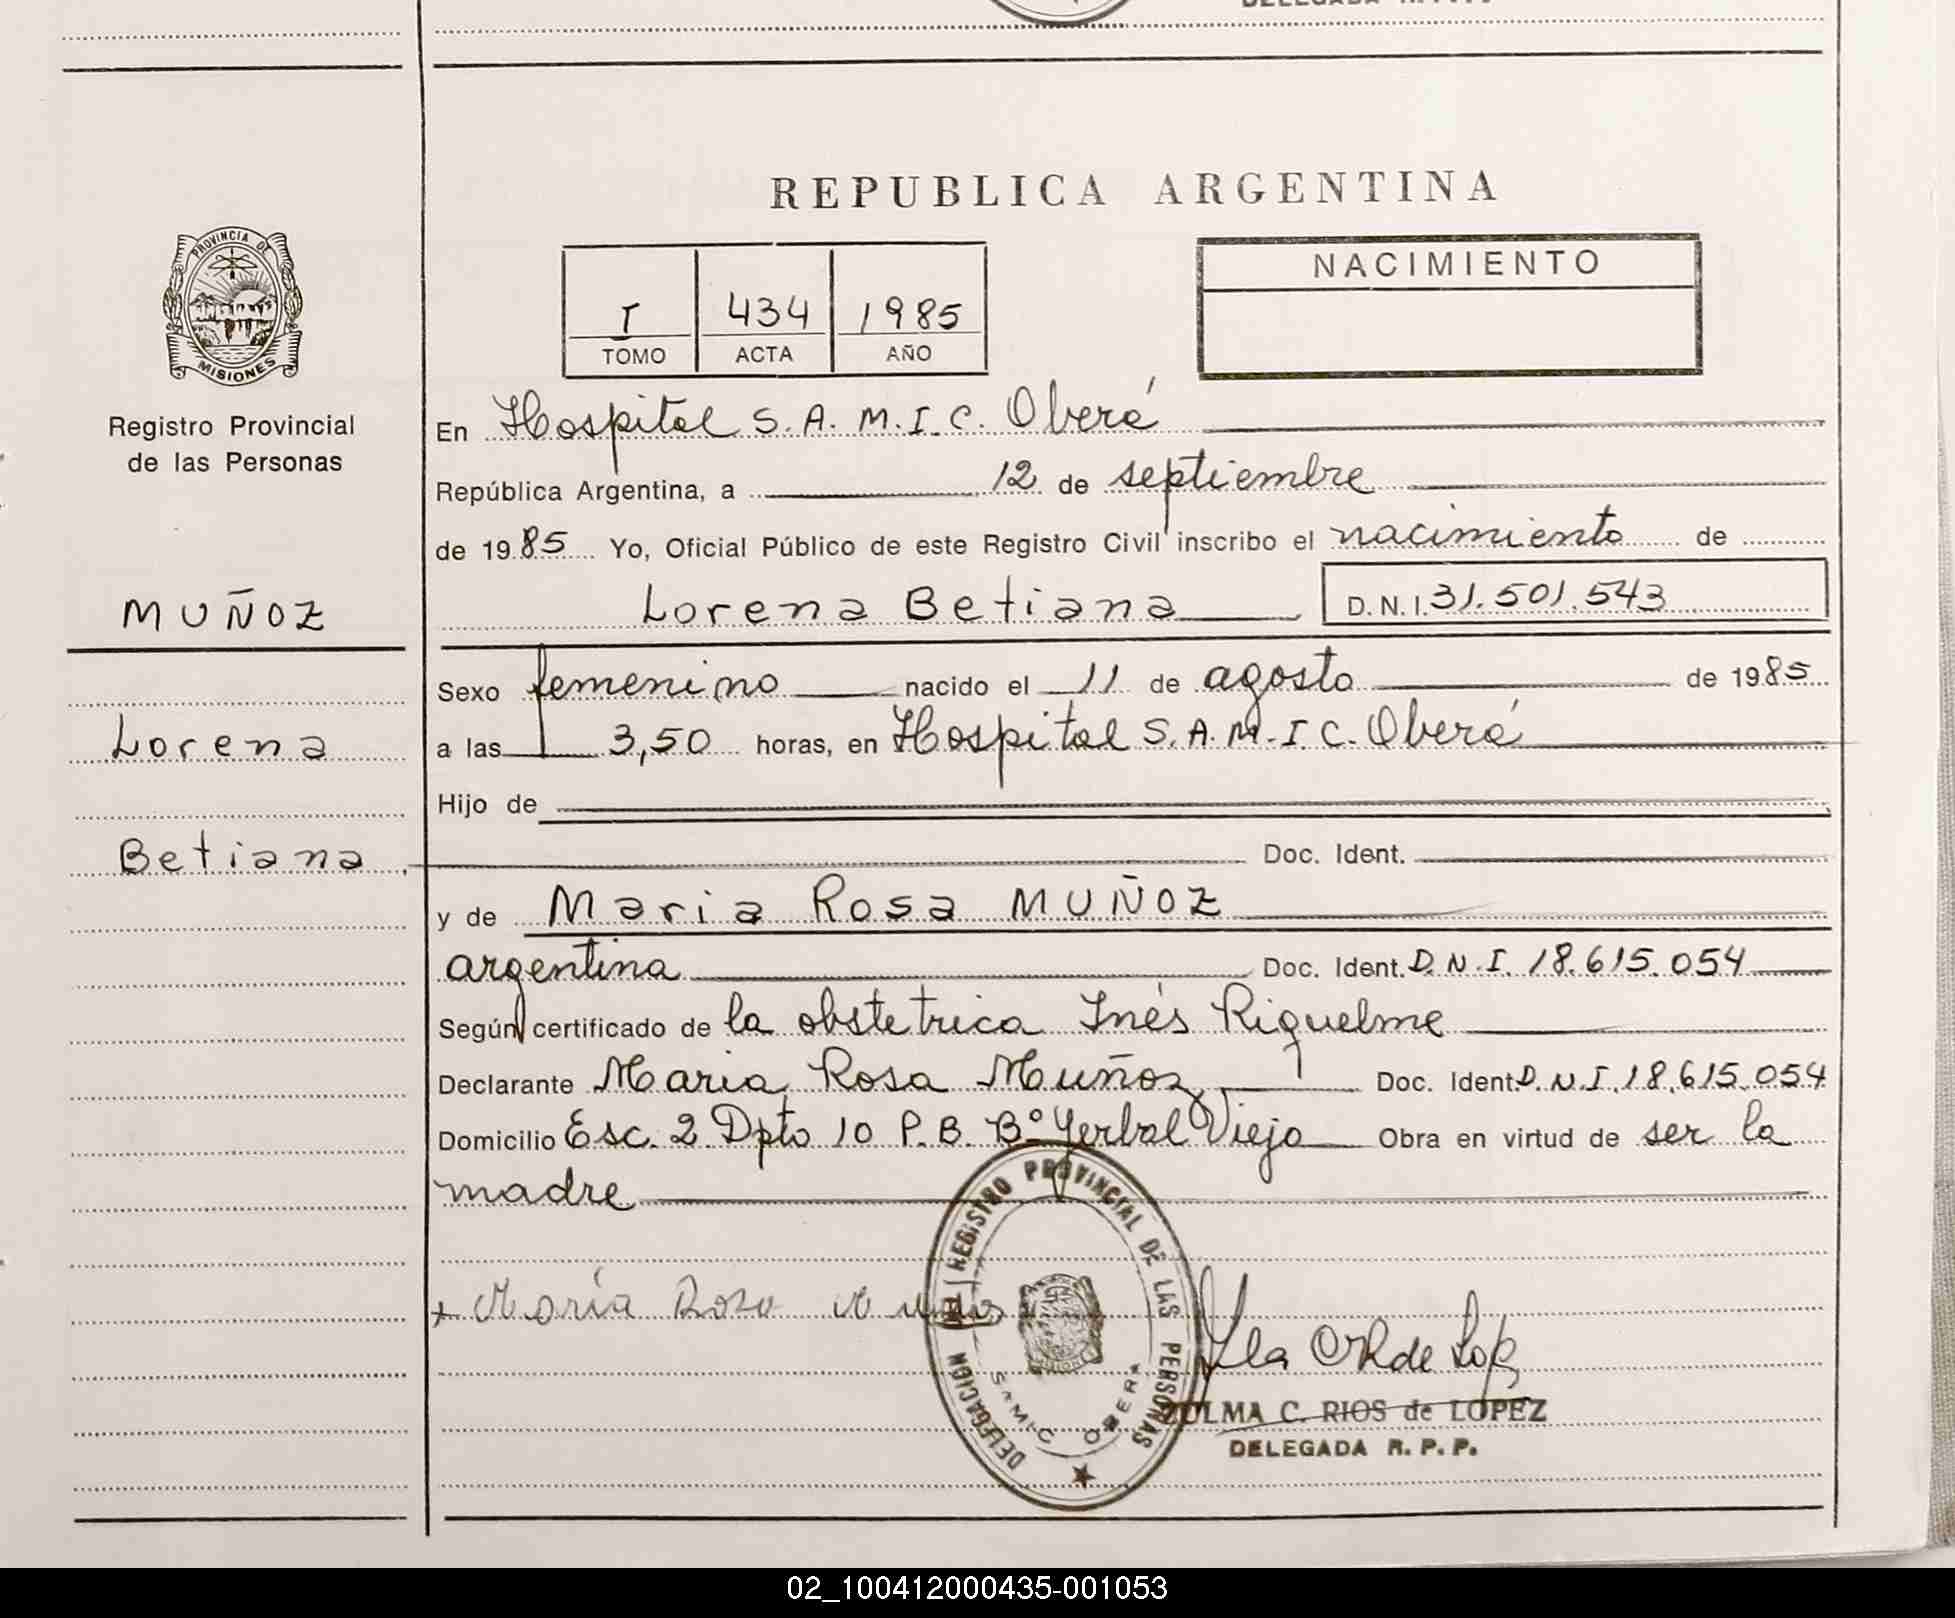 REPUBLICA ARGENTINA
PROVINCIA DE
MISIONES
Registro Provincial
de las Personas
MUÑOZ
Lorena
Betiana
I 434 1985
TOMO ACTA AÑO
NACIMIENTO
En Hospital S.A.M.I.C. Oberá
República Argentina, a 12 de septiembre
de 1985 Yo, Oficial Público de este Registro Civil inscribo el nacimiento de
Lorena Betiana D.N.I. 31.501.543
Sexo femenino nacido el 11 de agosto de 1985
a las 3,50 horas, en Hospital S.A.M.I.C. Oberá
Hijo de
Doc. Ident.
y de Maria Rosa MUÑOZ
argentina Doc. Ident. D.N.I. 18.615.054
Según certificado de la obstetrica Inés Riquelme
Declarante Maria Rosa Muñoz Doc. Ident. D.N.I. 18.615.054
Domicilio Esc. 2 Dpto 10 P.B. Bº Yerbal Viejo Obra en virtud de ser la
madre
María Rosa
DELEGACION REGISTRO PROVINCIAL DE LAS PERSONAS
SAMIC OBERA
ZULMA C. RIOS de LOPEZ
DELEGADA R.P.P.
02_100412000435-001053